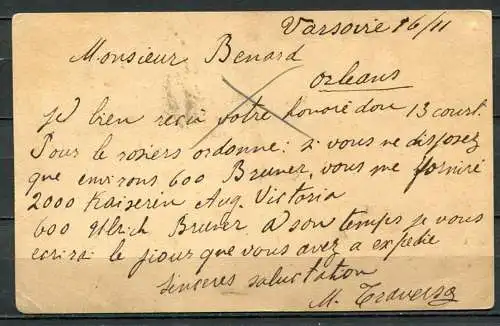 Varsoire 16/11
Monsieur Benard
Orleans
je bien reçu votre honoré dou 13 court.
Pour le rosiers ordonne: si vous ne disposez
que environs 600 Bruner, vous me forniré
2000 Kaiserin Aug. Victoria
600 Ulrich Bruner. A son temps je vous
ecrirai le jiour que vous avez a expedie
Sinceres salustation
M.